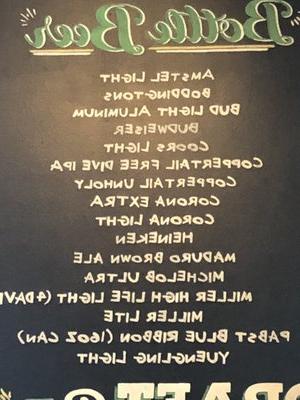 Bottle Beer
AMSTEL LIGHT
BODDINGTONS
BUD LIGHT ALUMINUM
BUDWEISER
COORS LIGHT
COPPERTAIL FREE DIVE IPA
COPPERTAIL UNHOLY
CORONA EXTRA
CORONA LIGHT
HEINEKEN
MADURO BROWN ALE
MICHELOB ULTRA
MILLER HIGH LIFE LIGHT (4DAVI
MILLER LITE
PABST BLUE RIBBON (16OZ CAN)
YUENGLING LIGHT
DRAFT